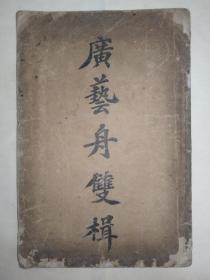 廣藝舟雙楫